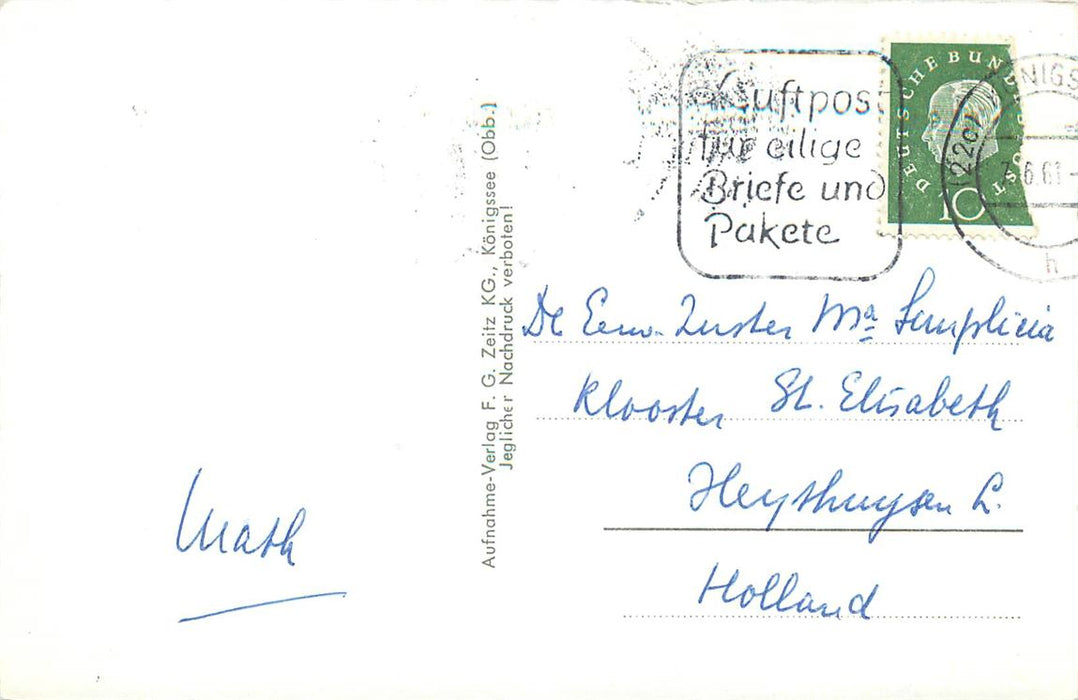 Luftpost
für eilige
Briefe und
Pakete
DEUTSCHE BUNDESPOST
10
(22c) KÖNIGS
7.6.61-
h
Aufnahme-Verlag F. G. Zeitz KG., Königssee (Obb.)
Jeglicher Nachdruck verboten!
De Eerw. Zuster Ma Simplicia
Klooster St. Elisabeth
Heythuysen L.
Holland
Math